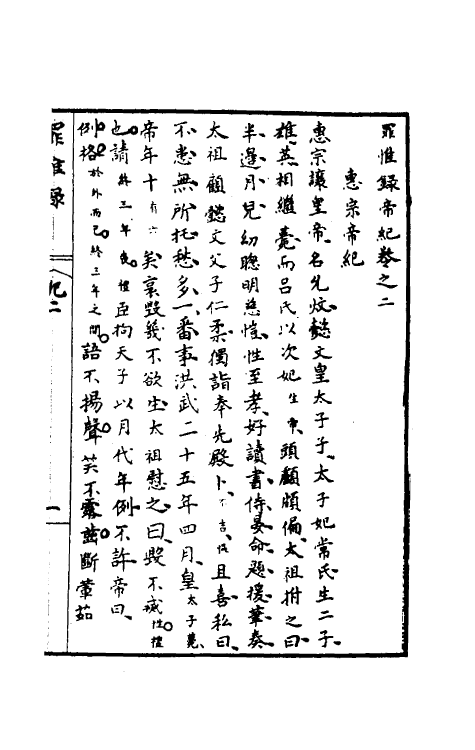 罪惟錄帝紀卷之二
惠宗帝紀
惠宗讓皇帝名允炆懿文皇太子子太子妃常氏生二子
雄英相繼薨而呂氏以次妃生帝頭顱頗偏太祖拊之曰
半邊月兒幼聰明慈愷性至孝好讀書侍晏命題援筆奏
太祖顧懿文父子仁柔獨詣奉先殿卜不吉且喜私曰
不患無所托愁多一番事洪武二十五年四月皇太子薨
帝年十有六矣哀毀幾不欲生太祖慰之曰毀不滅性禮
也請終三年喪禮臣拘天子以月代年例不許帝曰
例格於外而已終三年之間語不揚聲笑不露齒斷葷茹
罪惟錄
紀二
一